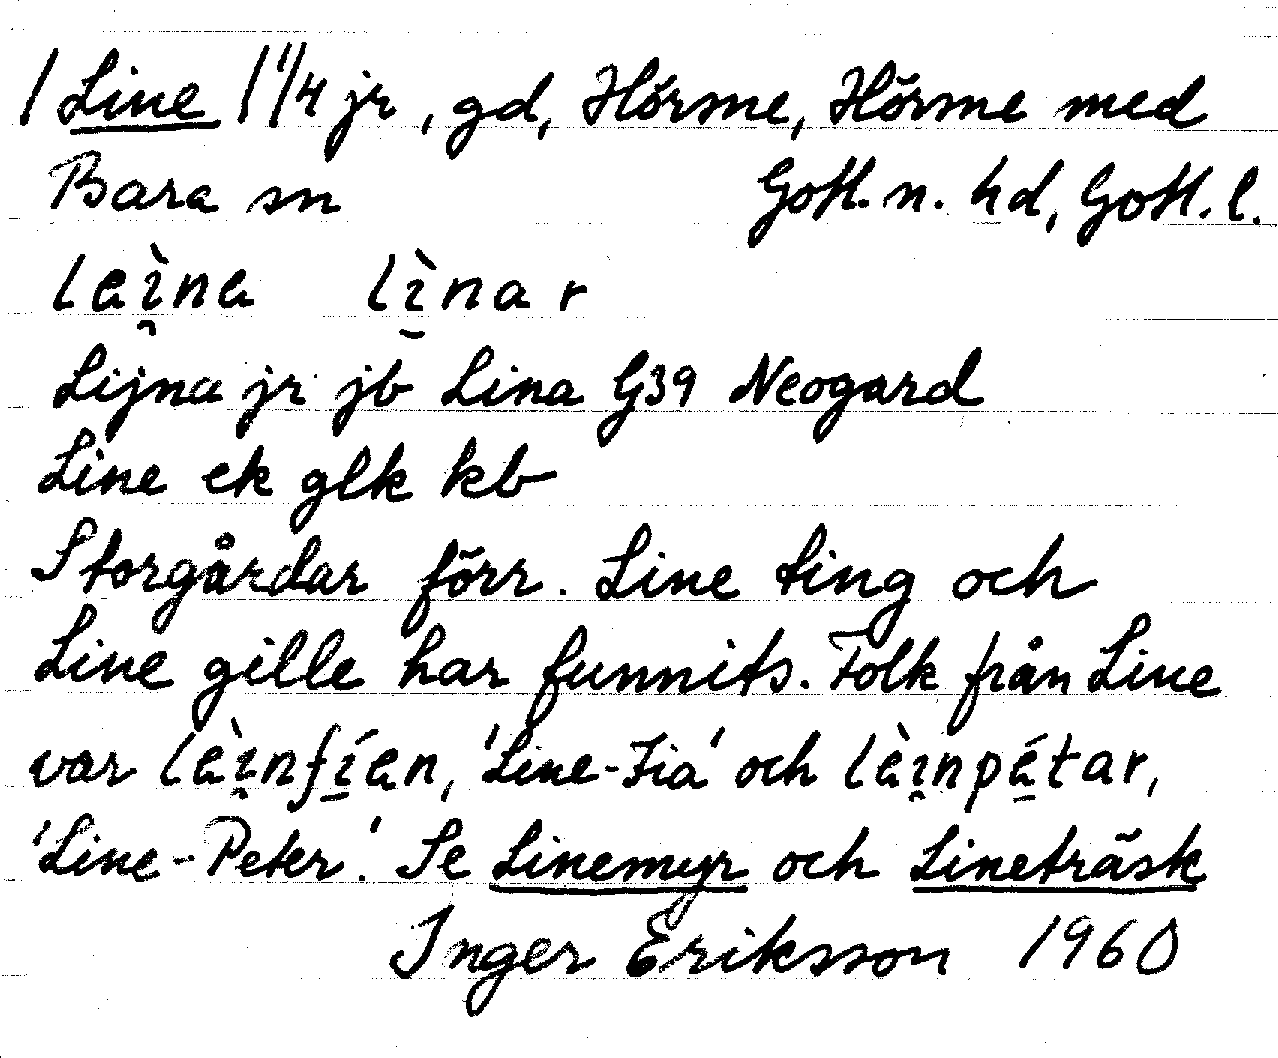 / Line / 1 1/4 jr, gd, Hörsne, Hörsne med
Bara sn Gotl. n. hd, Gotl. l.
laìna lìnar
Lijna jr jb Lina G39 Neogard
Line ek glk kb
Storgårdar förr. Line ting och
Line gille har funnits. Folk från Line
var laìnfían, 'Line-Fia' och laìnpétar,
'Line-Peter'. Se Linemyr och Lineträsk
Inger Eriksson 1960